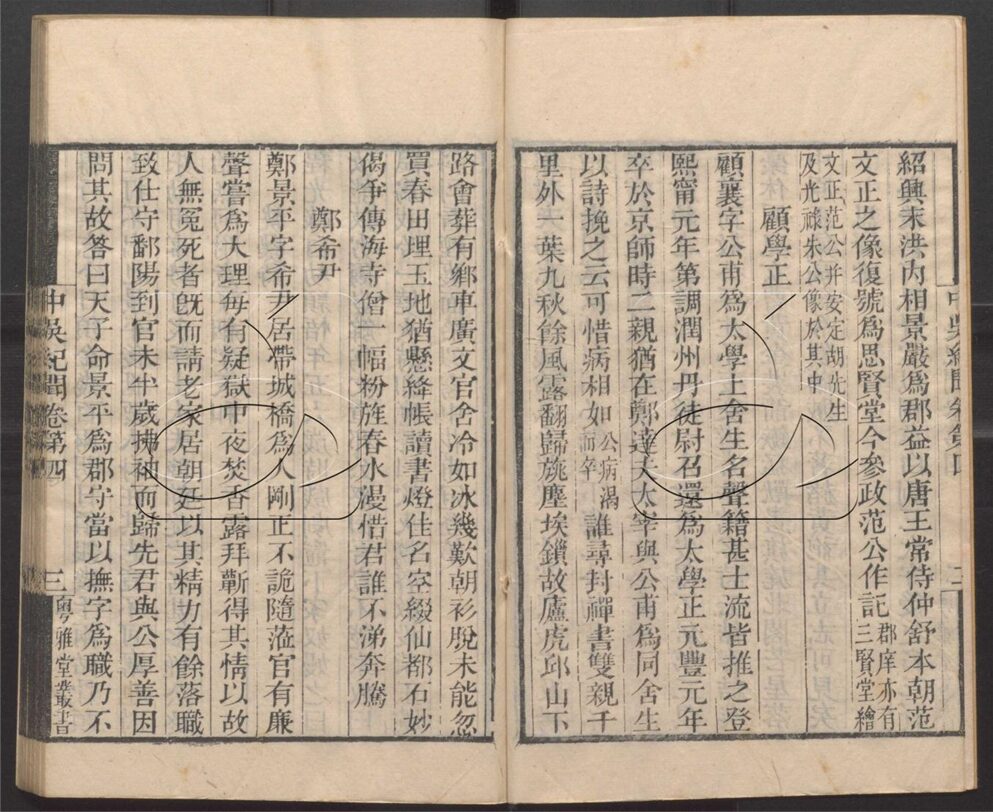 紹興末洪內相景嚴爲郡益以唐王常侍仲舒本朝范
文正之像復號爲思賢堂今參政范公作記郡庠亦有三賢堂繪
文正范公并安定胡先生及光祿朱公像於其中
顧學正
顧襄字公甫爲太學上舍生名聲籍甚士流皆推之登
熙甯元年第調潤州丹徒尉召還爲太學正元豐元年
卒於京師時二親猶在鄭達夫太宰與公甫爲同舍生
以詩挽之云可惜病相如公病渴而卒誰尋封禪書雙親千
里外一葉九秋餘風露翻歸旐塵埃鎖故廬虎邱山下
路會葬有鄉車廣文官舍冷如冰幾歎朝衫脫未能忽
買春田埋玉地猶懸絳帳讀書燈佳名空綴仙都石妙
偈爭傳海寺僧一幅粉旌春水漫借君誰不涕奔騰
鄭希尹
鄭景平字希尹居帶城橋爲人剛正不詭隨蒞官有廉
聲嘗爲大理每有疑獄中夜焚香露拜蘄得其情以故
人無冤死者旣而請老家居朝廷以其精力有餘落職
致仕守鄱陽到官未半歲拂袖而歸先君與公厚善因
問其故答曰天子命景平爲郡守當以撫字爲職乃不
中吳紀聞卷第四
三
粵雅堂叢書